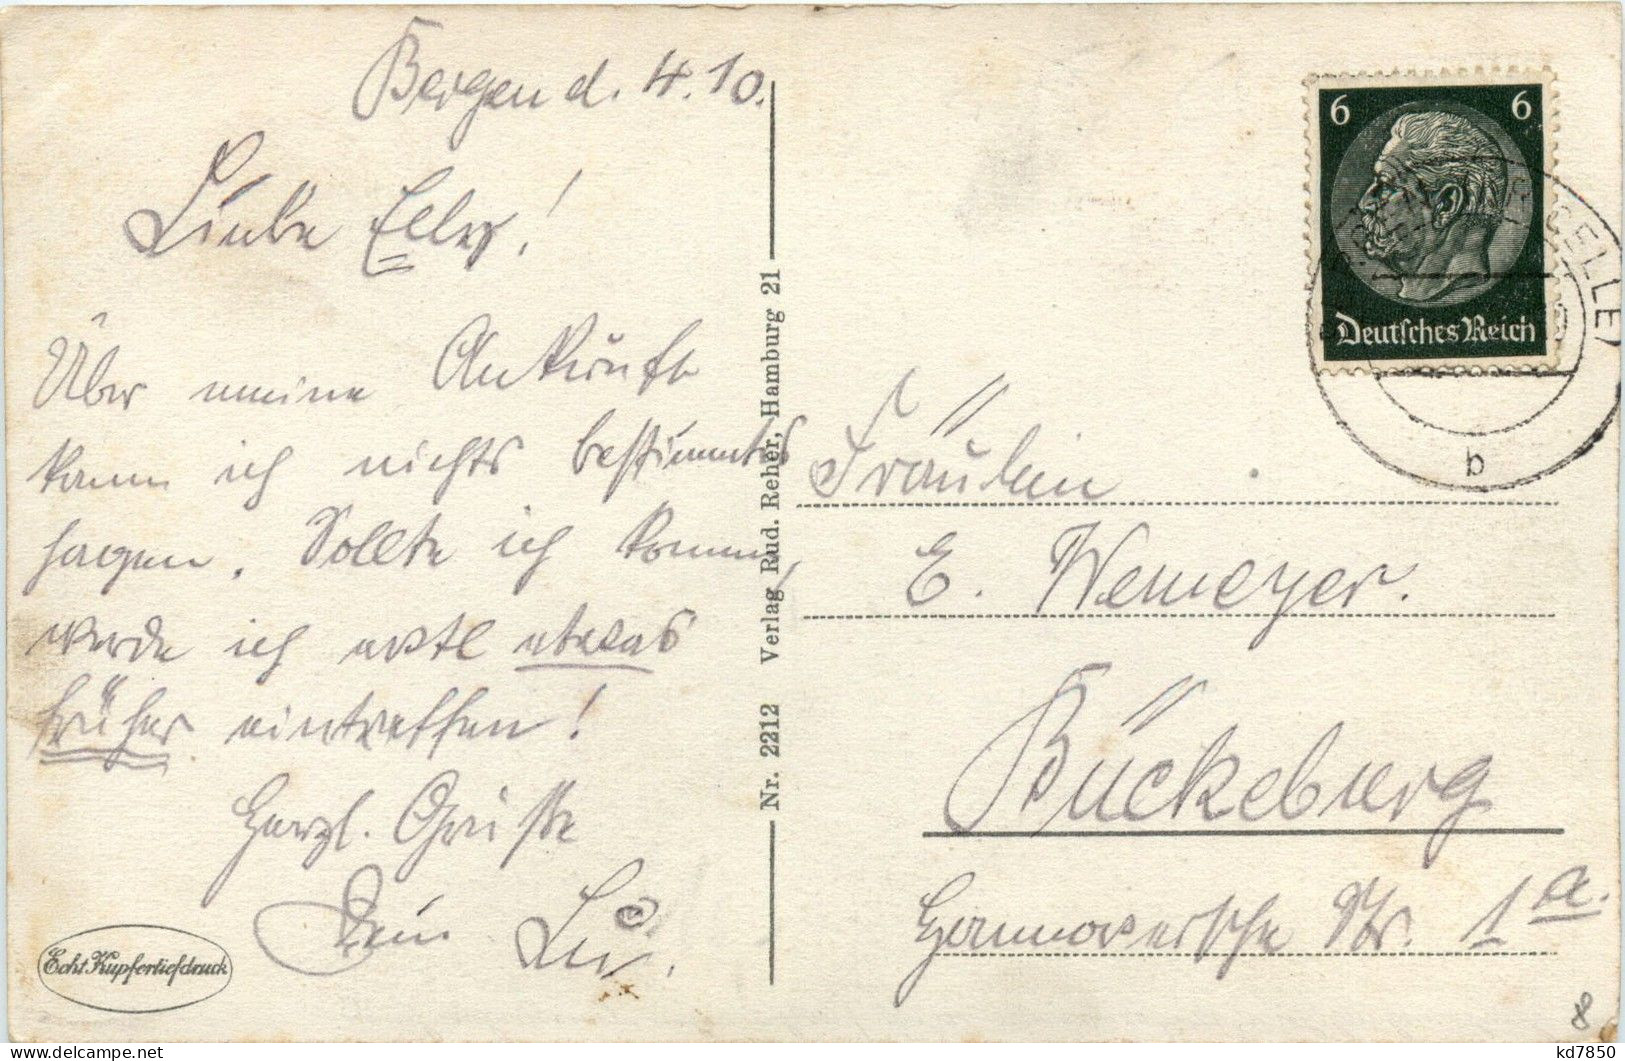 Bergen d. 4.10.
Liebe Elly!
Über meine Ankunft
kann ich nichts bestimmtes
sagen. Sollte ich kommen,
werde ich erst etwas
früher eintreffen!
Herzl. Grüße
Dein
Echt Kupfertiefdruck
Nr. 2212 Verlag Rud. Reher, Hamburg 21
6 6
Deutsches Reich
CELLE)
b
Fräulein
E. Wemeyer.
Bückeburg
Hannoversche Str. 1a.
8
kd7850